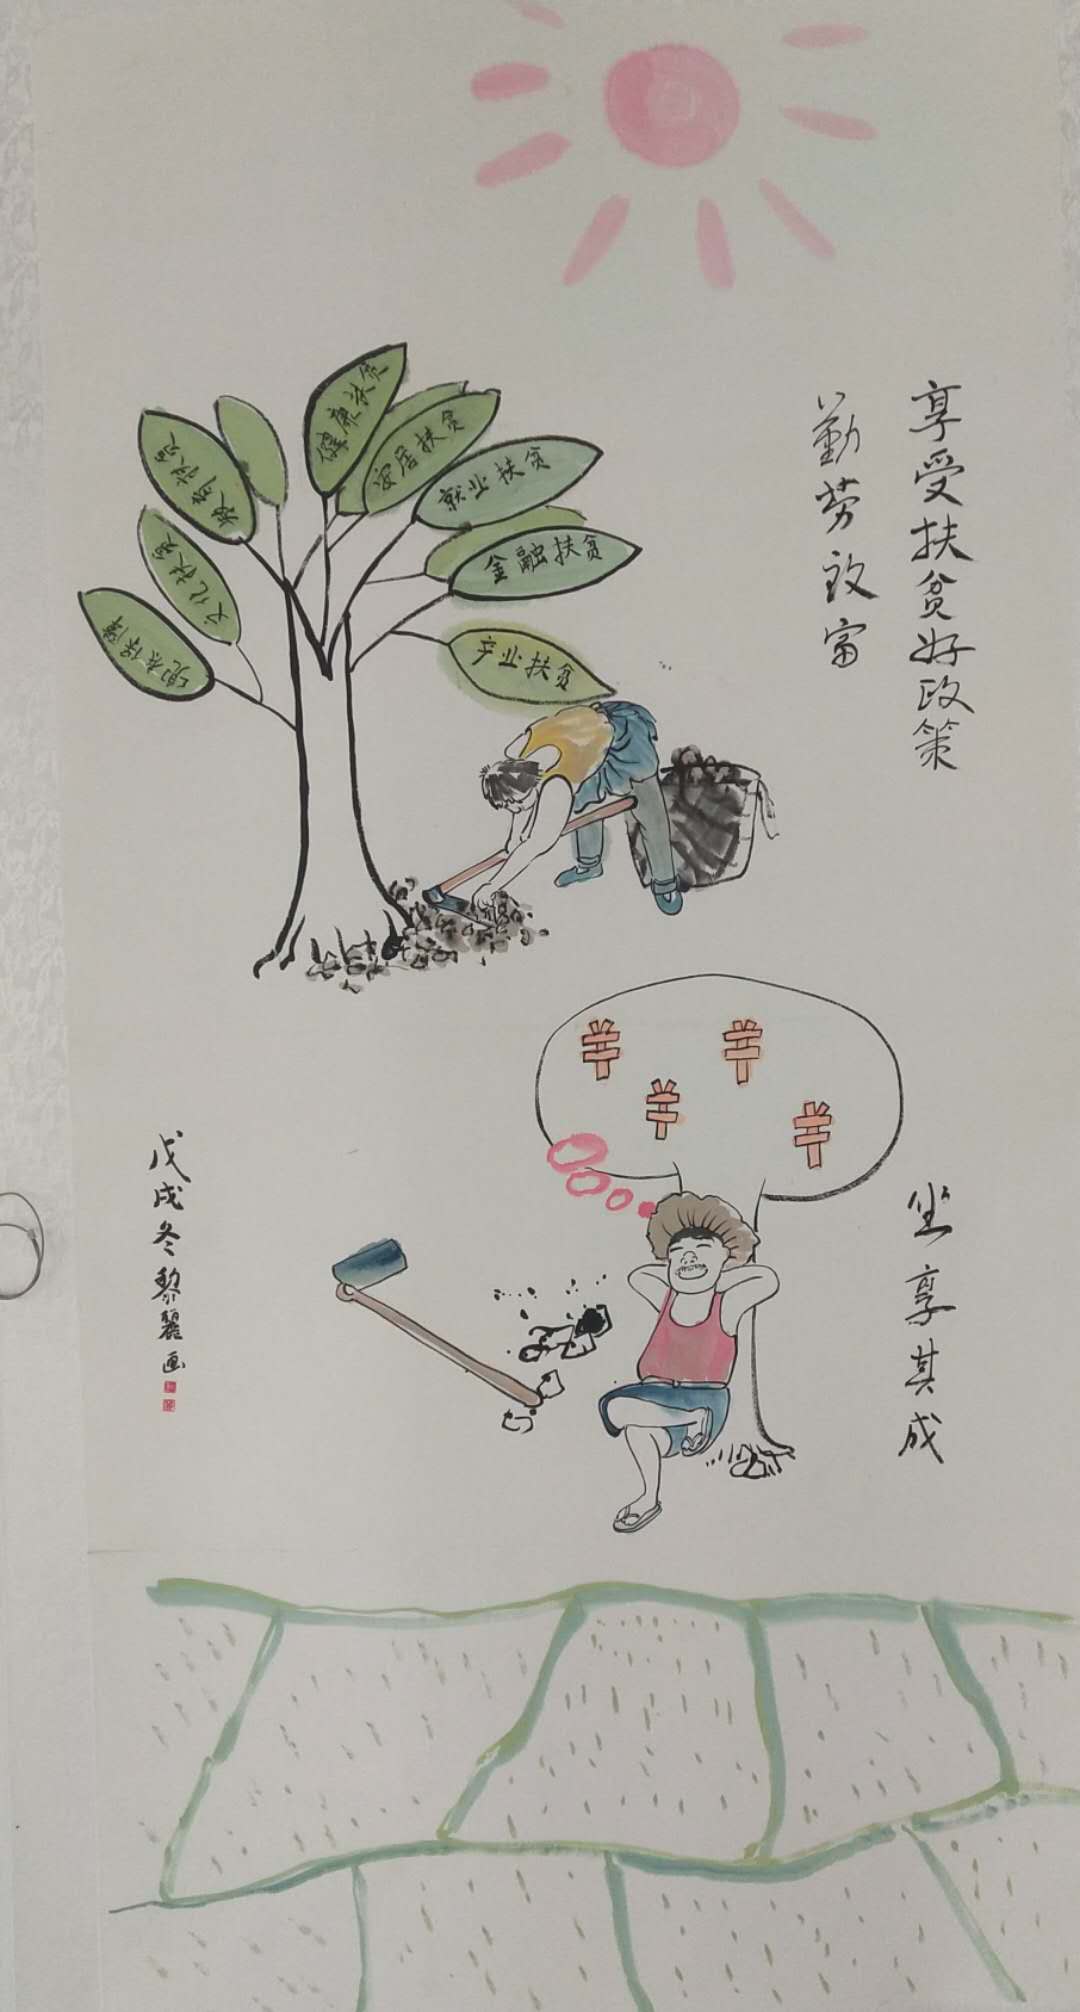 享受扶贫好政策
勤劳致富
健康扶贫
安居扶贫
就业扶贫
金融扶贫
产业扶贫
教育扶贫
文化扶贫
兜底保障
坐享其成
戊戌冬黎麗画